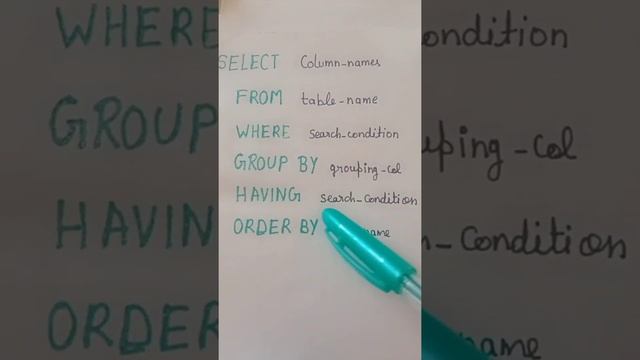 SELECT Column-names
FROM table-name
WHERE search-condition
GROUP BY grouping-col
HAVING search-Condition
ORDER BY name